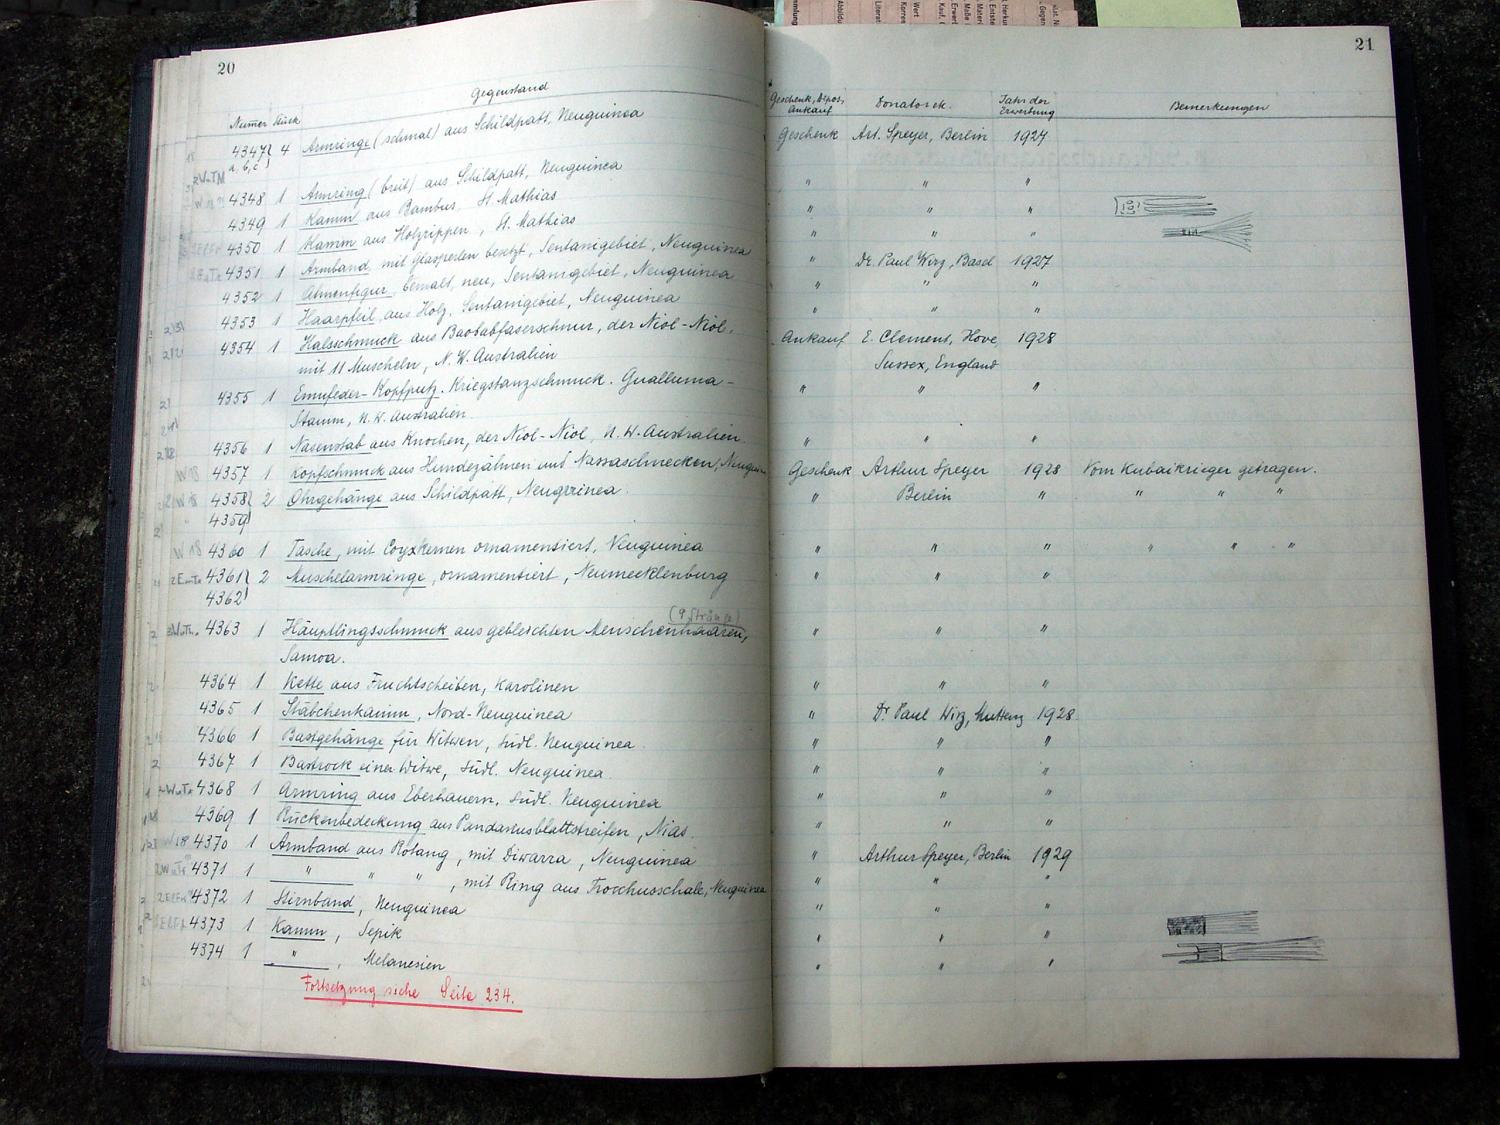 20
Gegenstand
Numer Stück
4347 4 Armringe (schmal) aus Schildpatt, Neuguinea
a, b, c
4348 1 Armring (breit) aus Schildpatt, Neuguinea
4349 1 Kamm aus Bambus, St. Mathias
4350 1 Kamm aus Holzrippen, St. Mathias
4351 1 Armband mit Glasperlen besetzt, Sentanigebiet, Neuguinea
4352 1 Ahnenfigur, bemalt, neu, Sentanigebiet, Neuguinea
4353 1 Haarpfeil aus Holz, Sentanigebiet, Neuguinea
4354 1 Halsschmuck aus Baobabfaserschnur, der Niol-Niol,
mit 11 Muscheln, N. W. Australien
4355 1 Emufeder-Kopfputz. Kriegstanzschmuck. Gualluma-
Stamm, N. W. Australien.
4356 1 Nasenstab aus Knochen, der Niol-Niol, N. W. Australien.
4357 1 Kopfschmuck aus Hundezähnen und Nassaschnecken,
4358 2 Ohrgehänge aus Schildpatt, Neuguinea.
4359
W 18 4360 1 Tasche, mit Coyxkernen ornamentiert, Neuguinea
4361 2 Muschelarmringe, ornamentiert, Neumecklenburg
4362
(9 Stränge)
4363 1 Häuptlingsschmuck aus gebleichten Menschenhaaren,
Samoa.
4364 1 Kette aus Fruchtscheiben, Karolinen
4365 1 Stäbchenkamm, Nord-Neuguinea
4366 1 Bastgehänge für Witwen, südl. Neuguinea.
4367 1 Bastrock einer Witwe, südl. Neuguinea.
4368 1 Armring aus Eberhauern, südl. Neuguinea
4369 1 Rückenbedeckung aus Pandanusblattstreifen, Nias.
4370 1 Armband aus Rotang, mit Diwarra, Neuguinea
4371 1 " " " , mit Ring aus Trochusschale, Neuguinea
4372 1 Stirnband, Neuguinea
4373 1 Kamm, Sepik
4374 1 " , Melanesien
Fortsetzung siehe Seite 234.
21
Geschenk, Depos, Donator ek. Jahr der Bemerkungen
Ankauf Erwerbung
Geschenk Art. Speyer, Berlin 1927
" " "
" " "
" " "
" Dr. Paul Wirz, Basel 1927
" " "
" " "
Ankauf E. Clement, Hove 1928
Sussex, England
" " "
" " "
Geschenk Arthur Speyer 1928 Vom Kubaikrieger getragen.
" Berlin " " " "
" " " " " "
" " "
" " "
" " "
" Dr. Paul Wirz, Muttenz 1928
" " "
" " "
" " "
" " "
" Arthur Speyer, Berlin 1929
" " "
" " "
" " "
" " "